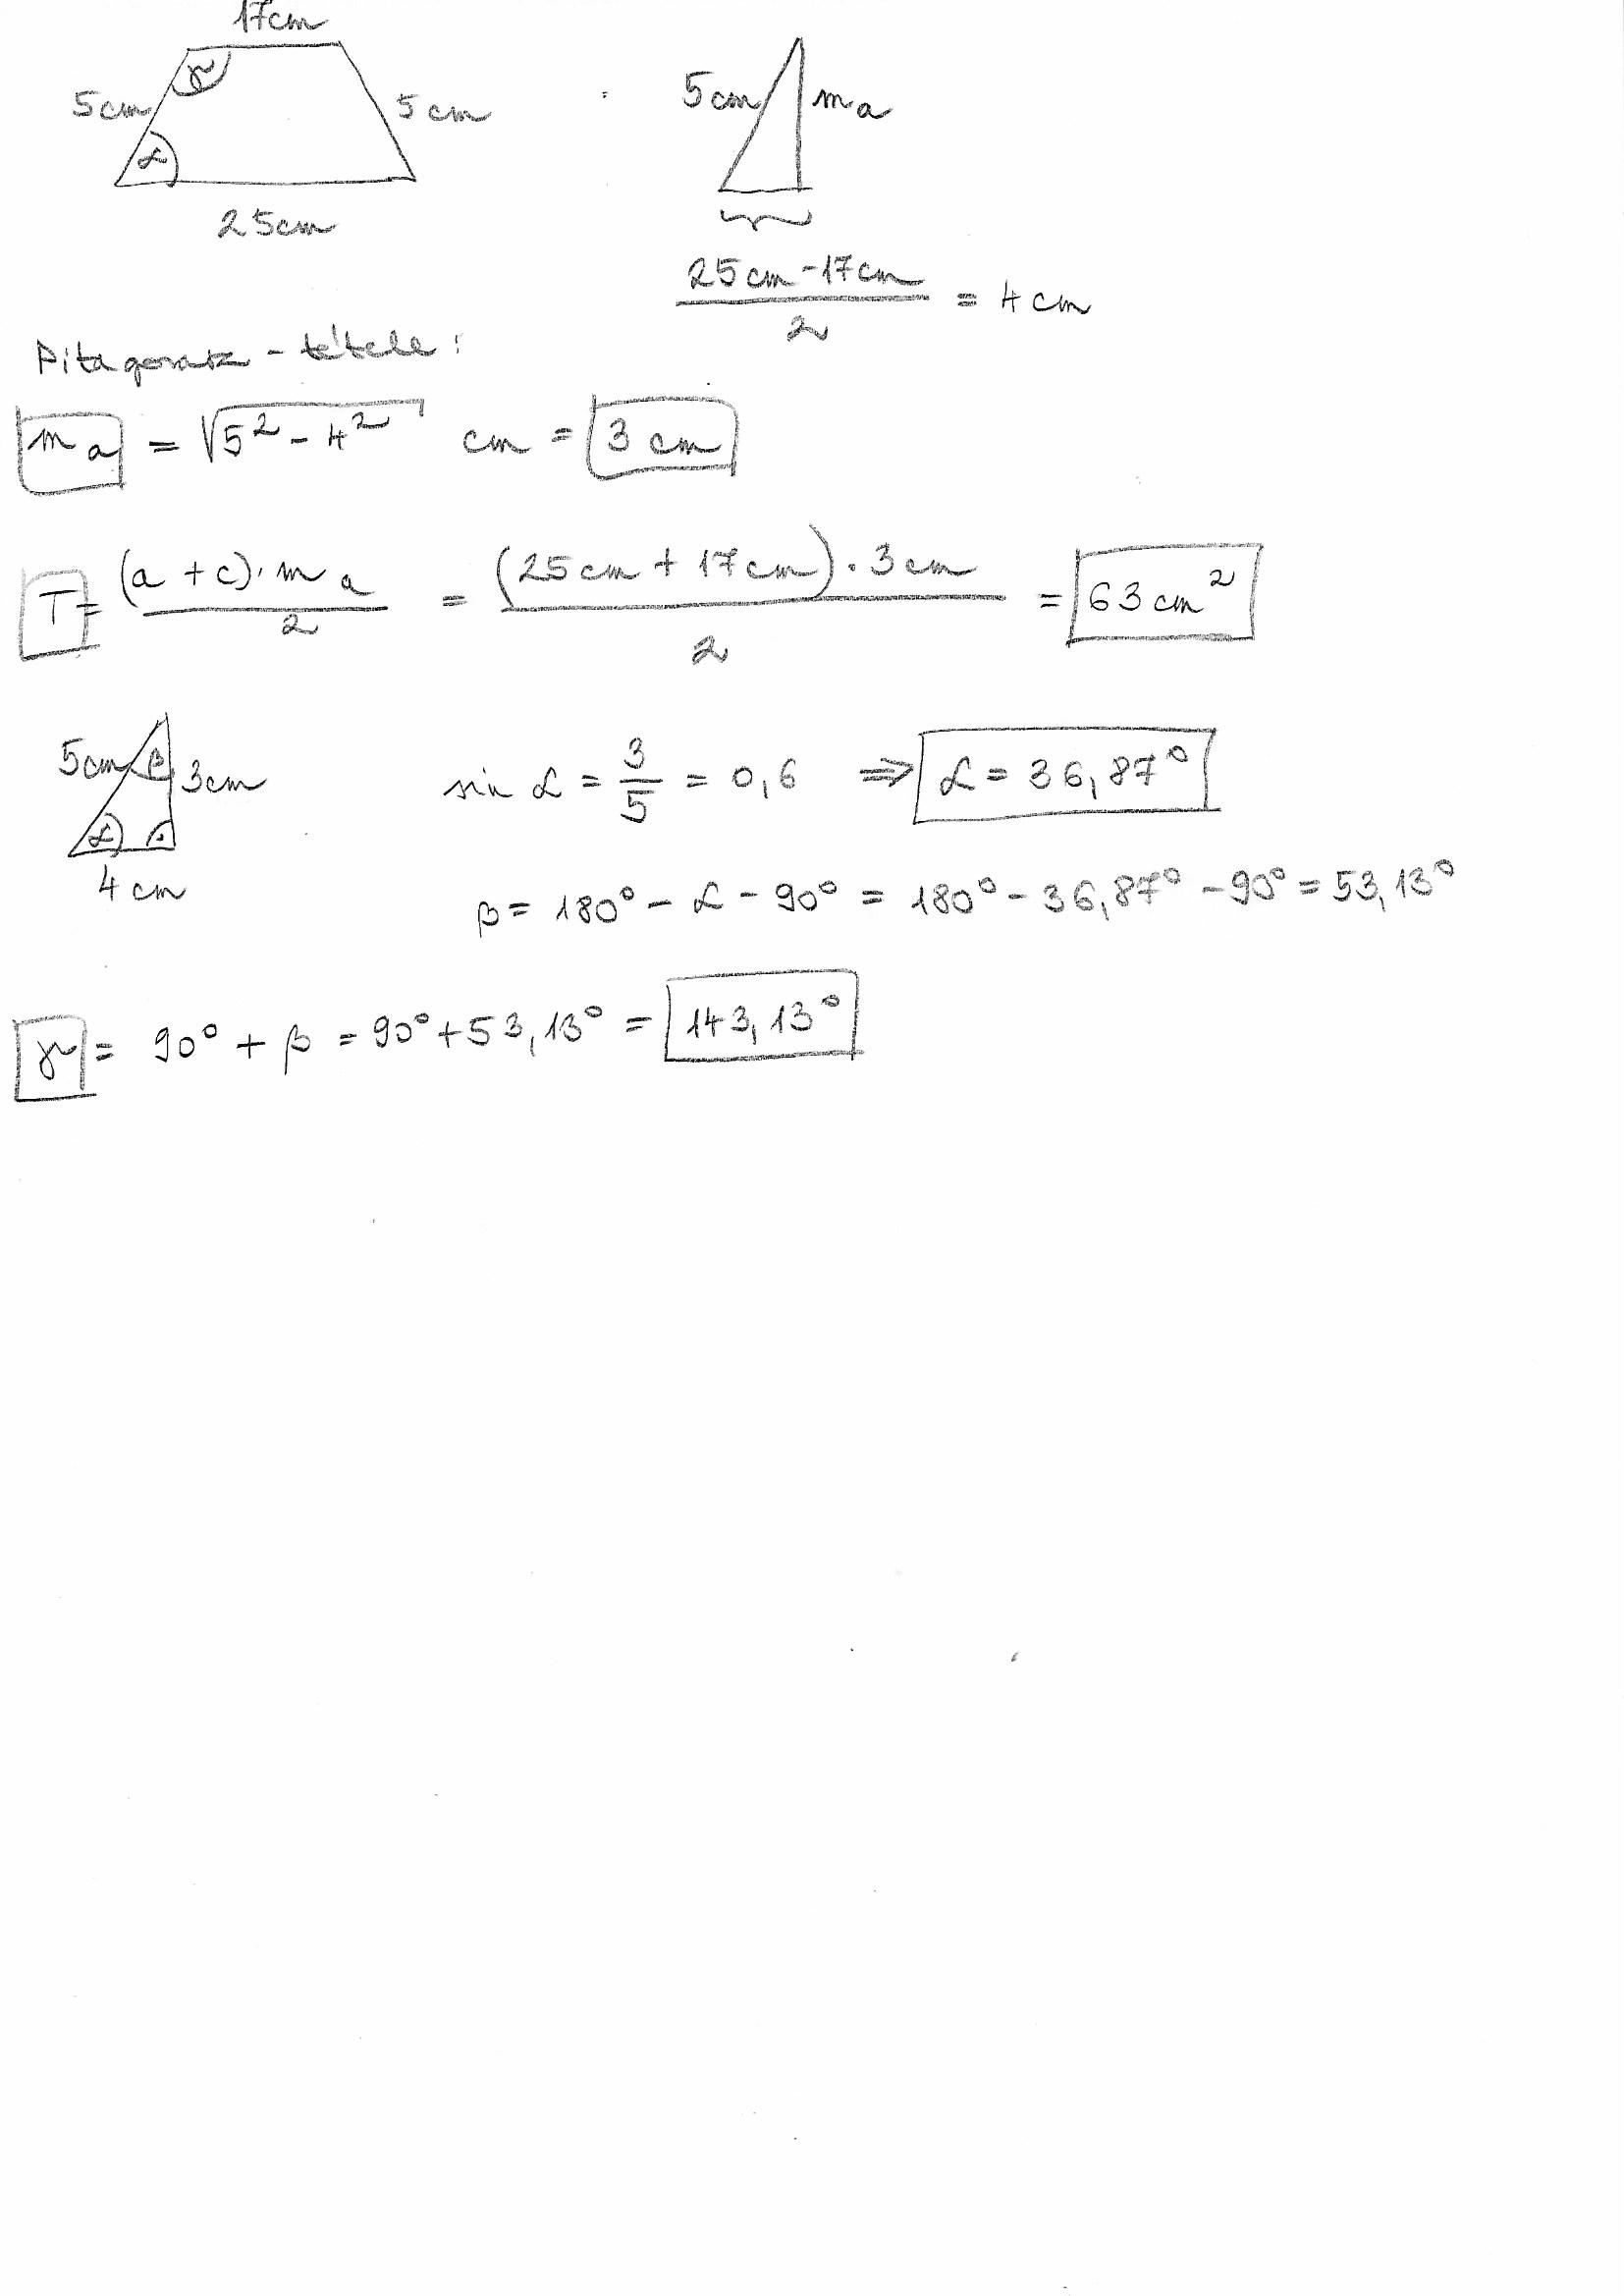 17cm
5cm γ 5cm
α
25cm
5cm mₐ
(25cm - 17cm)/2 = 4cm
Pitagorasz-tétele:
mₐ = √(5² - 4²) cm = 3 cm
T = (a + c)·mₐ/2 = (25cm + 17cm)·3cm/2 = 63cm²
5cm β 3cm
α
4cm
sin α = 3/5 = 0,6 ⇒ α = 36,87°
β = 180° - α - 90° = 180° - 36,87° - 90° = 53,13°
γ = 90° + β = 90° + 53,13° = 143,13°